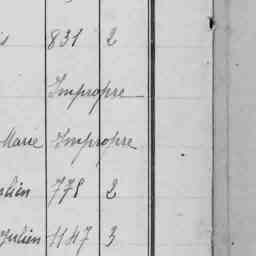 831 2
Impropre
Marie Impropre
778 2
Julien 1147 3